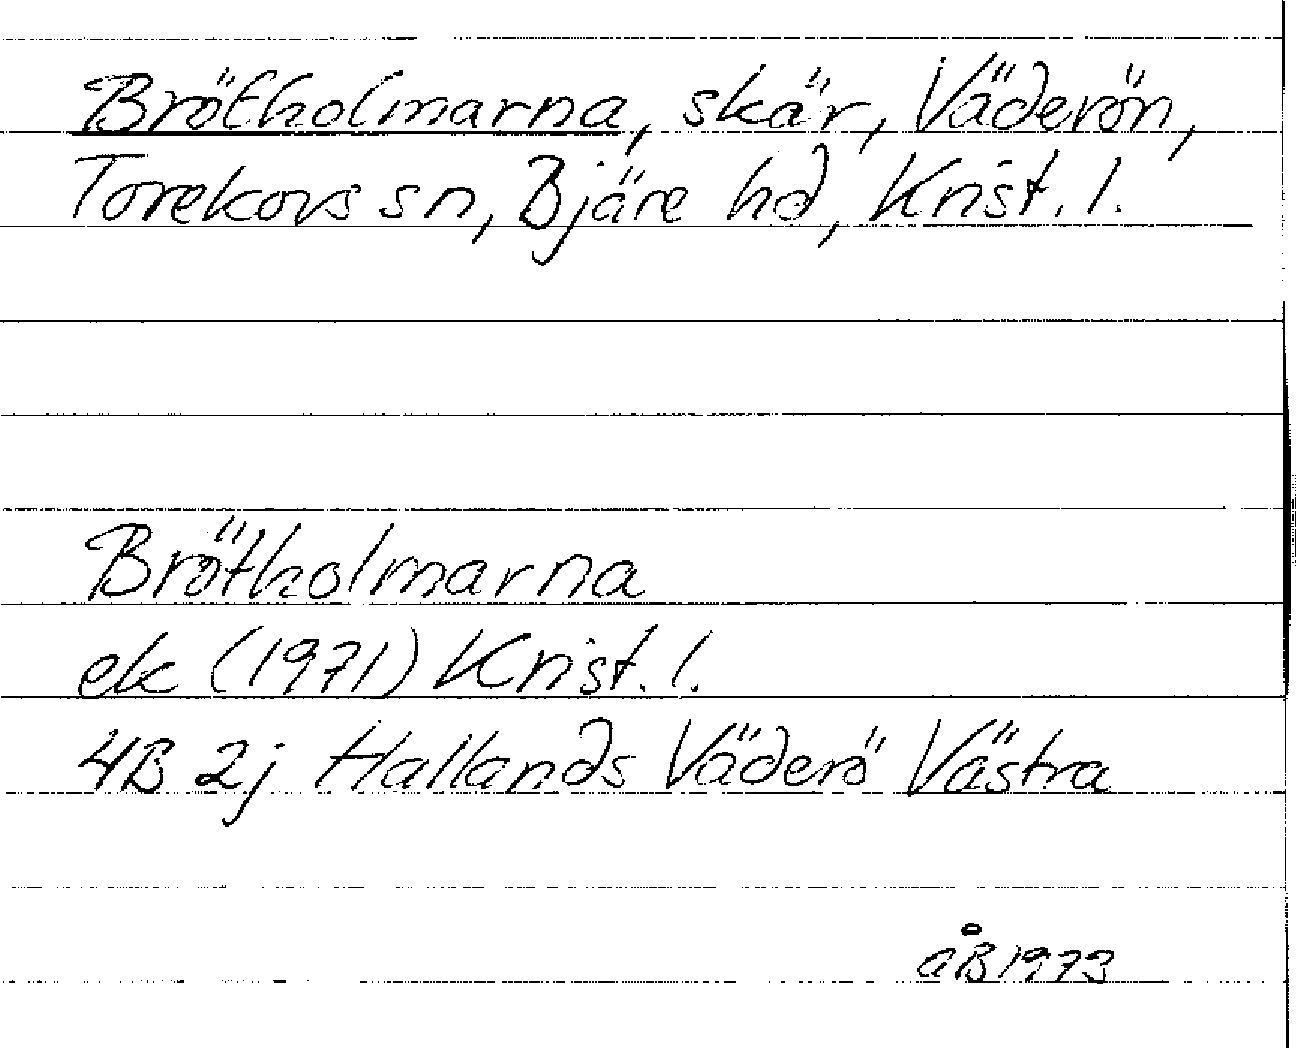 Brötholmarna, skär, Väderön,
Torekovs sn, Bjäre hd, Krist. l.
Brötholmarna
ek (1971) Krist. l.
4B 2j Hallands Väderö Västra
åB 1973